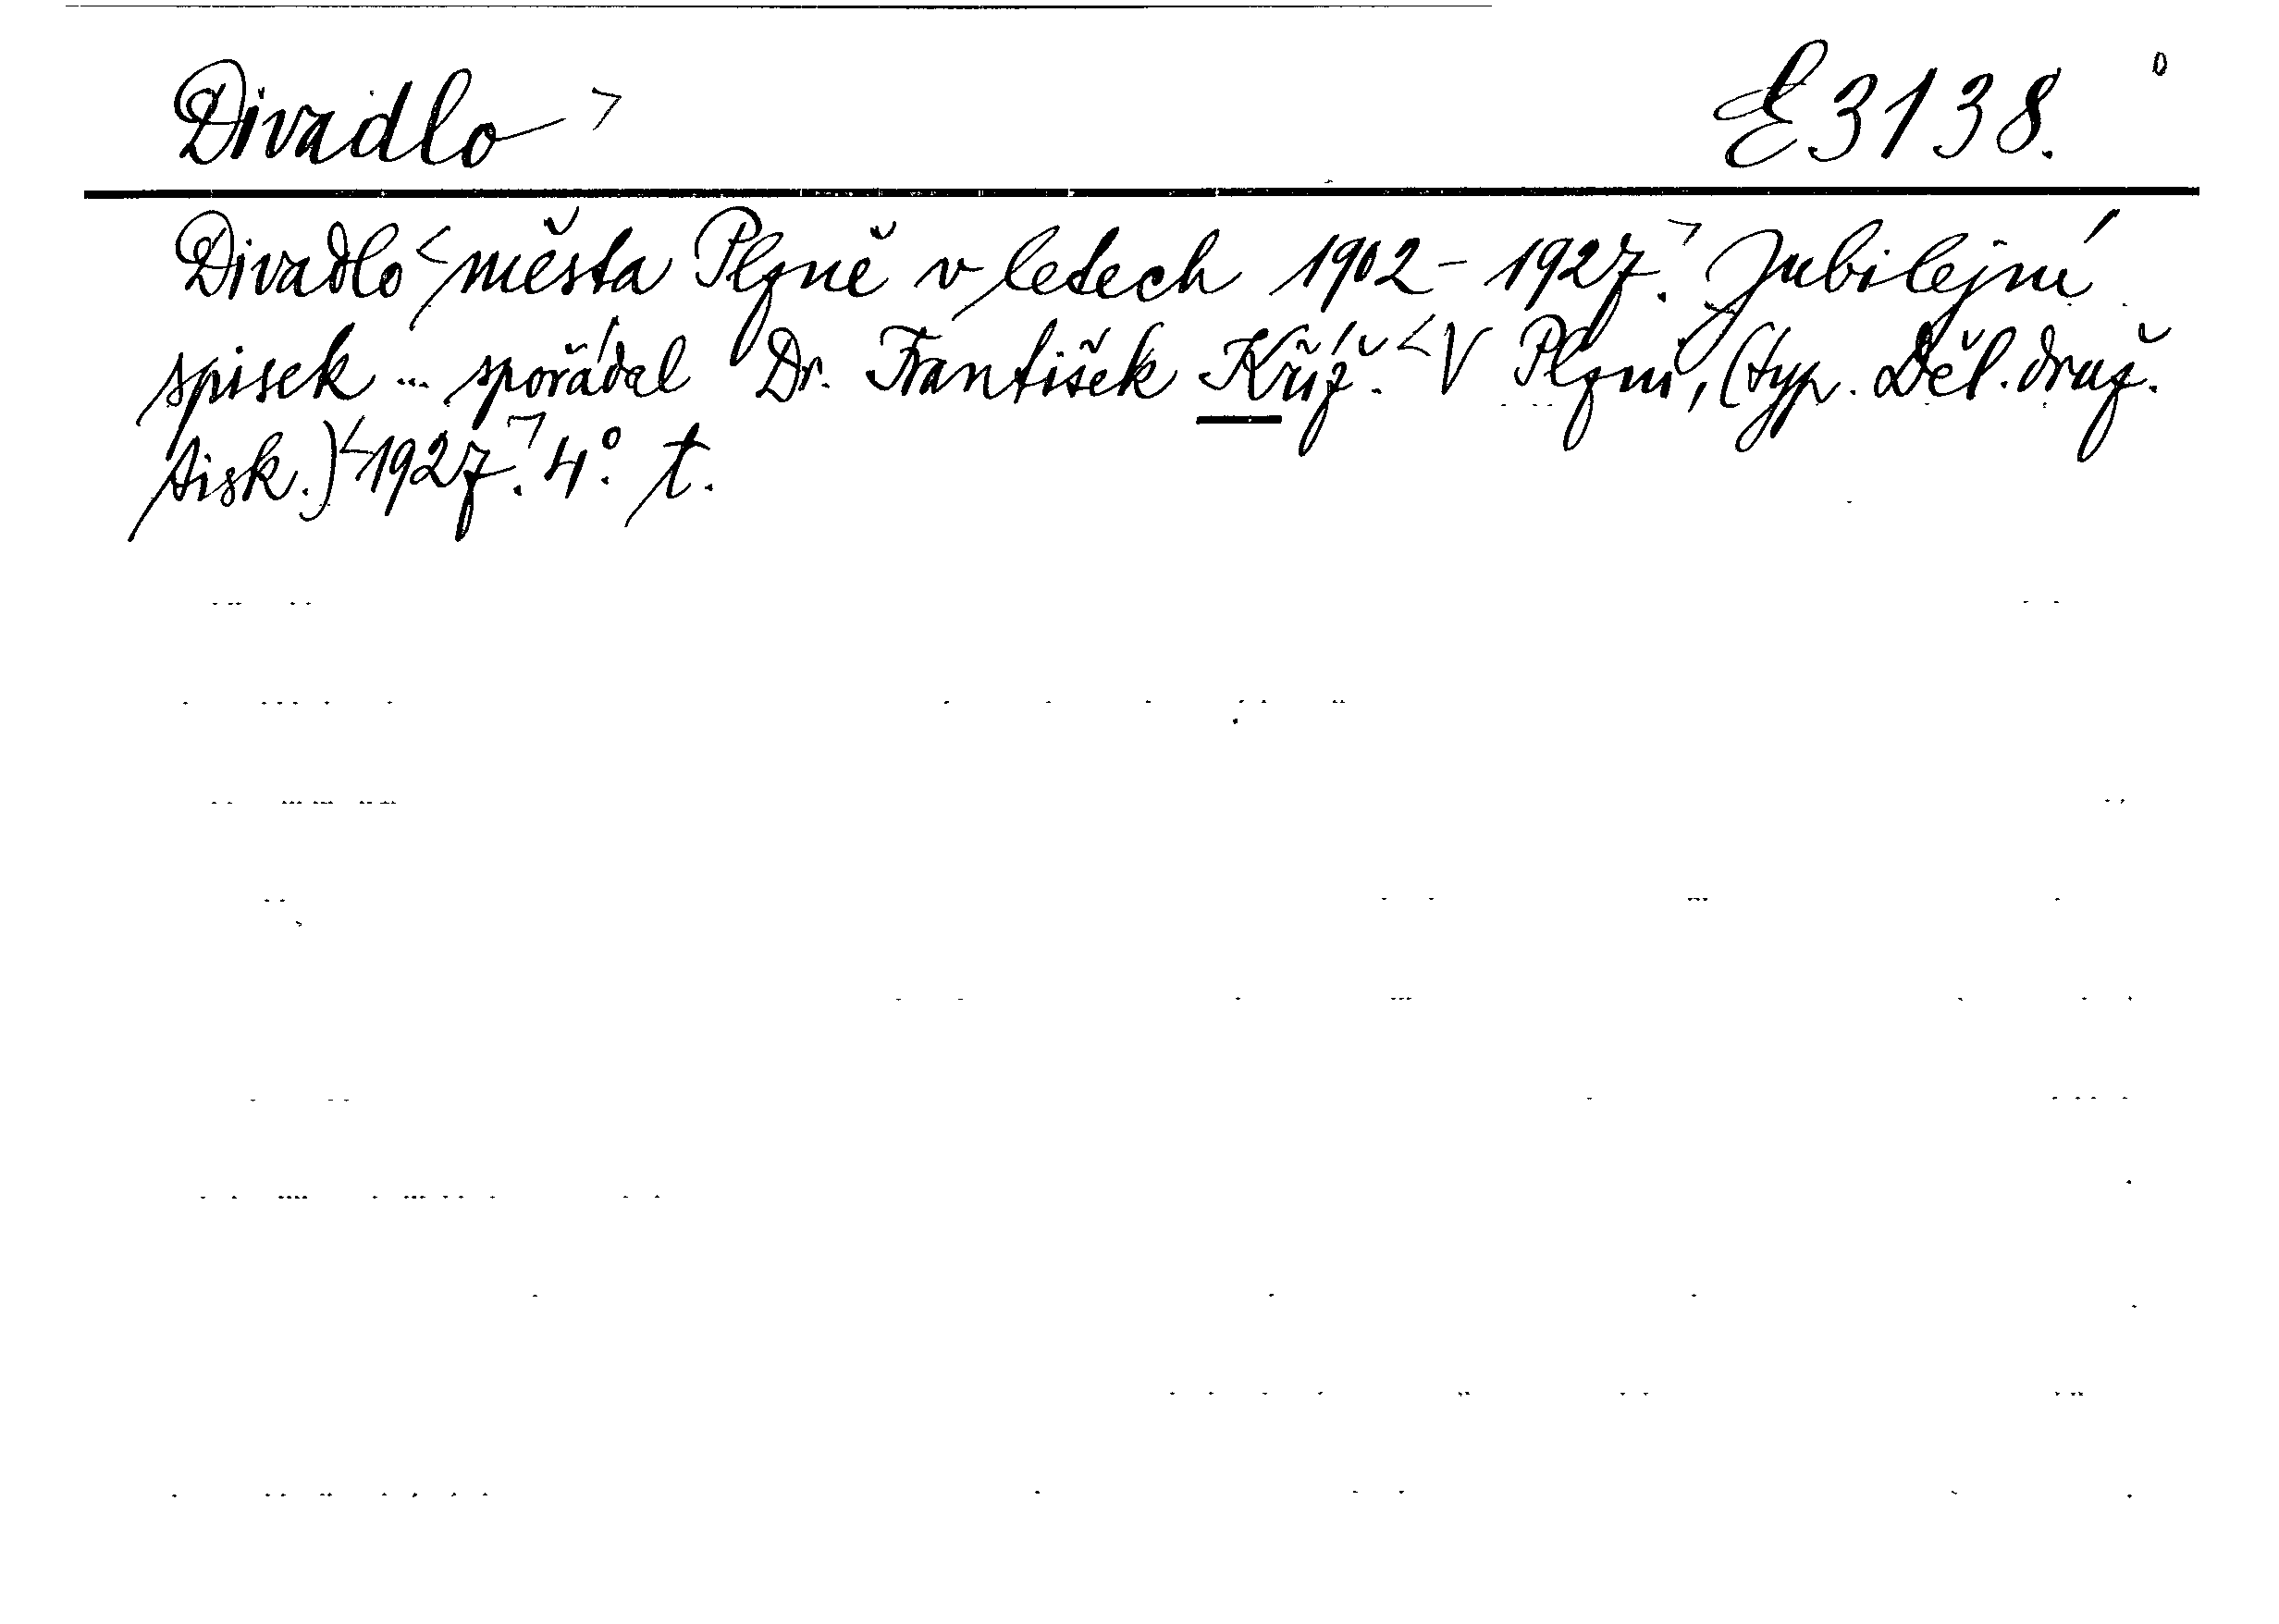 Divadlo ┐ E 3138.
Divadlo < města Plzně v letech 1902 - 1927. ┐ Jubilejní
spisek ... spořádal Dr. František Kříž. < V Plzni, (typ. Děl. druž.
tisk.) < 1927. ┐ 4° t.